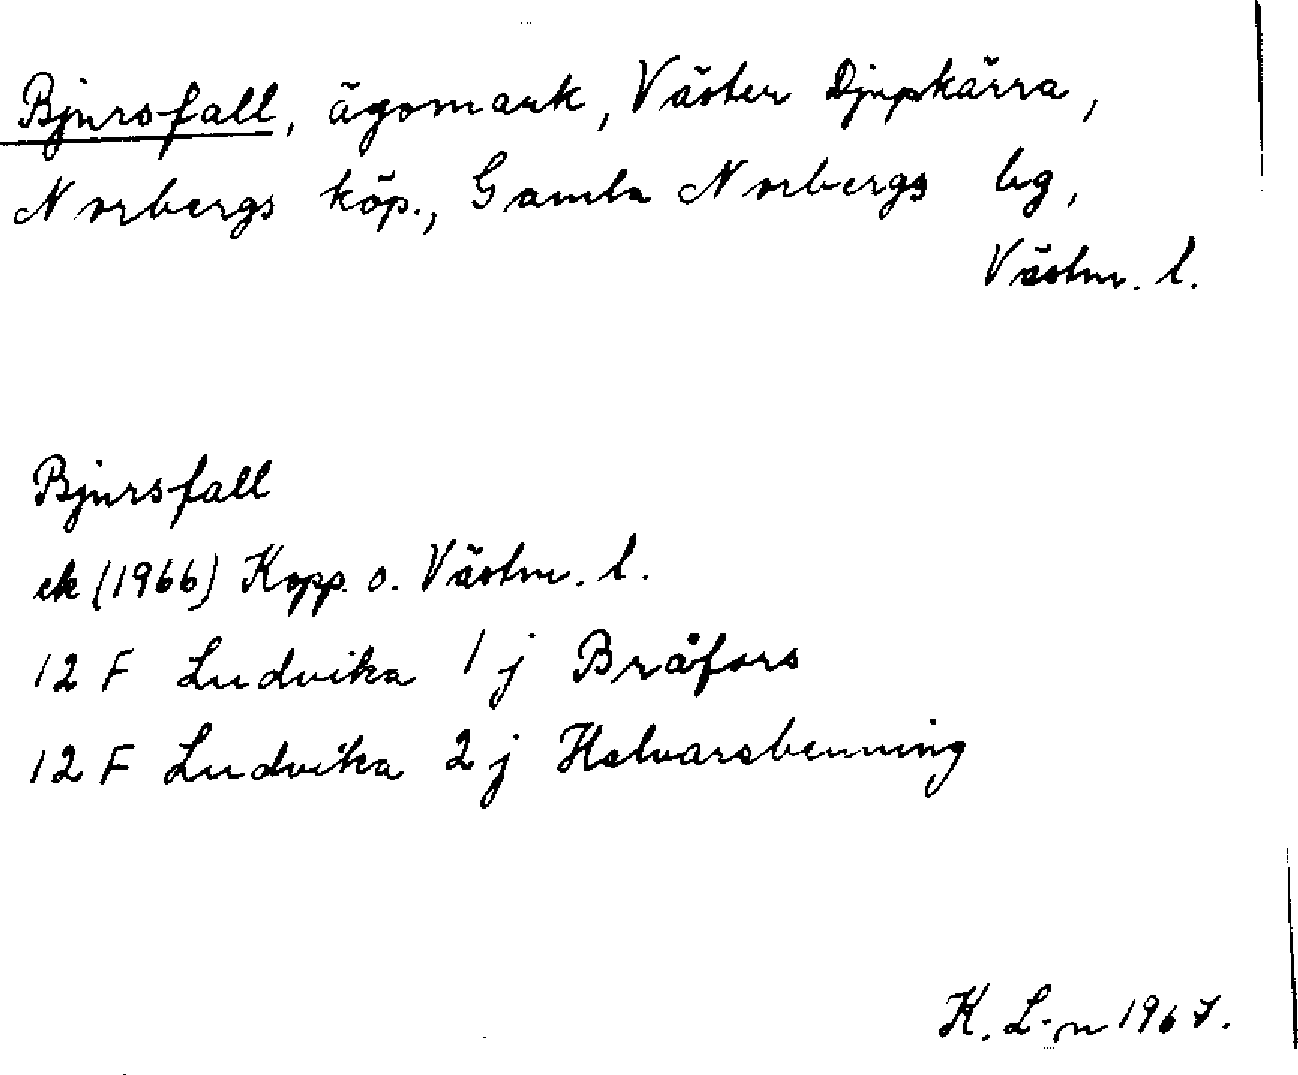 Bjursfall, ägomark, Väster Djupkärra,
Norbergs köp., Gamla Norbergs bg,
Västm. l.
Bjursfall
ek (1966) Kopp. o. Västm. l.
12 F Ludvika 1 j Bråfors
12 F Ludvika 2 j Halvarsbenning
K. L-n 1967.